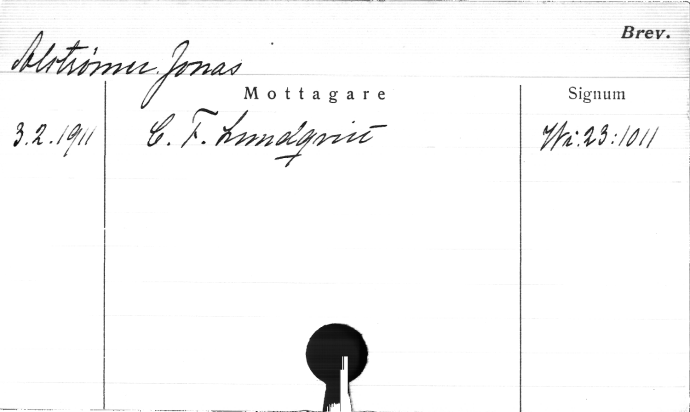 Brev.
Alströmer, Jonas
Mottagare
Signum
3.2.1911
C. F. Lundqvist
Wi.23:1011